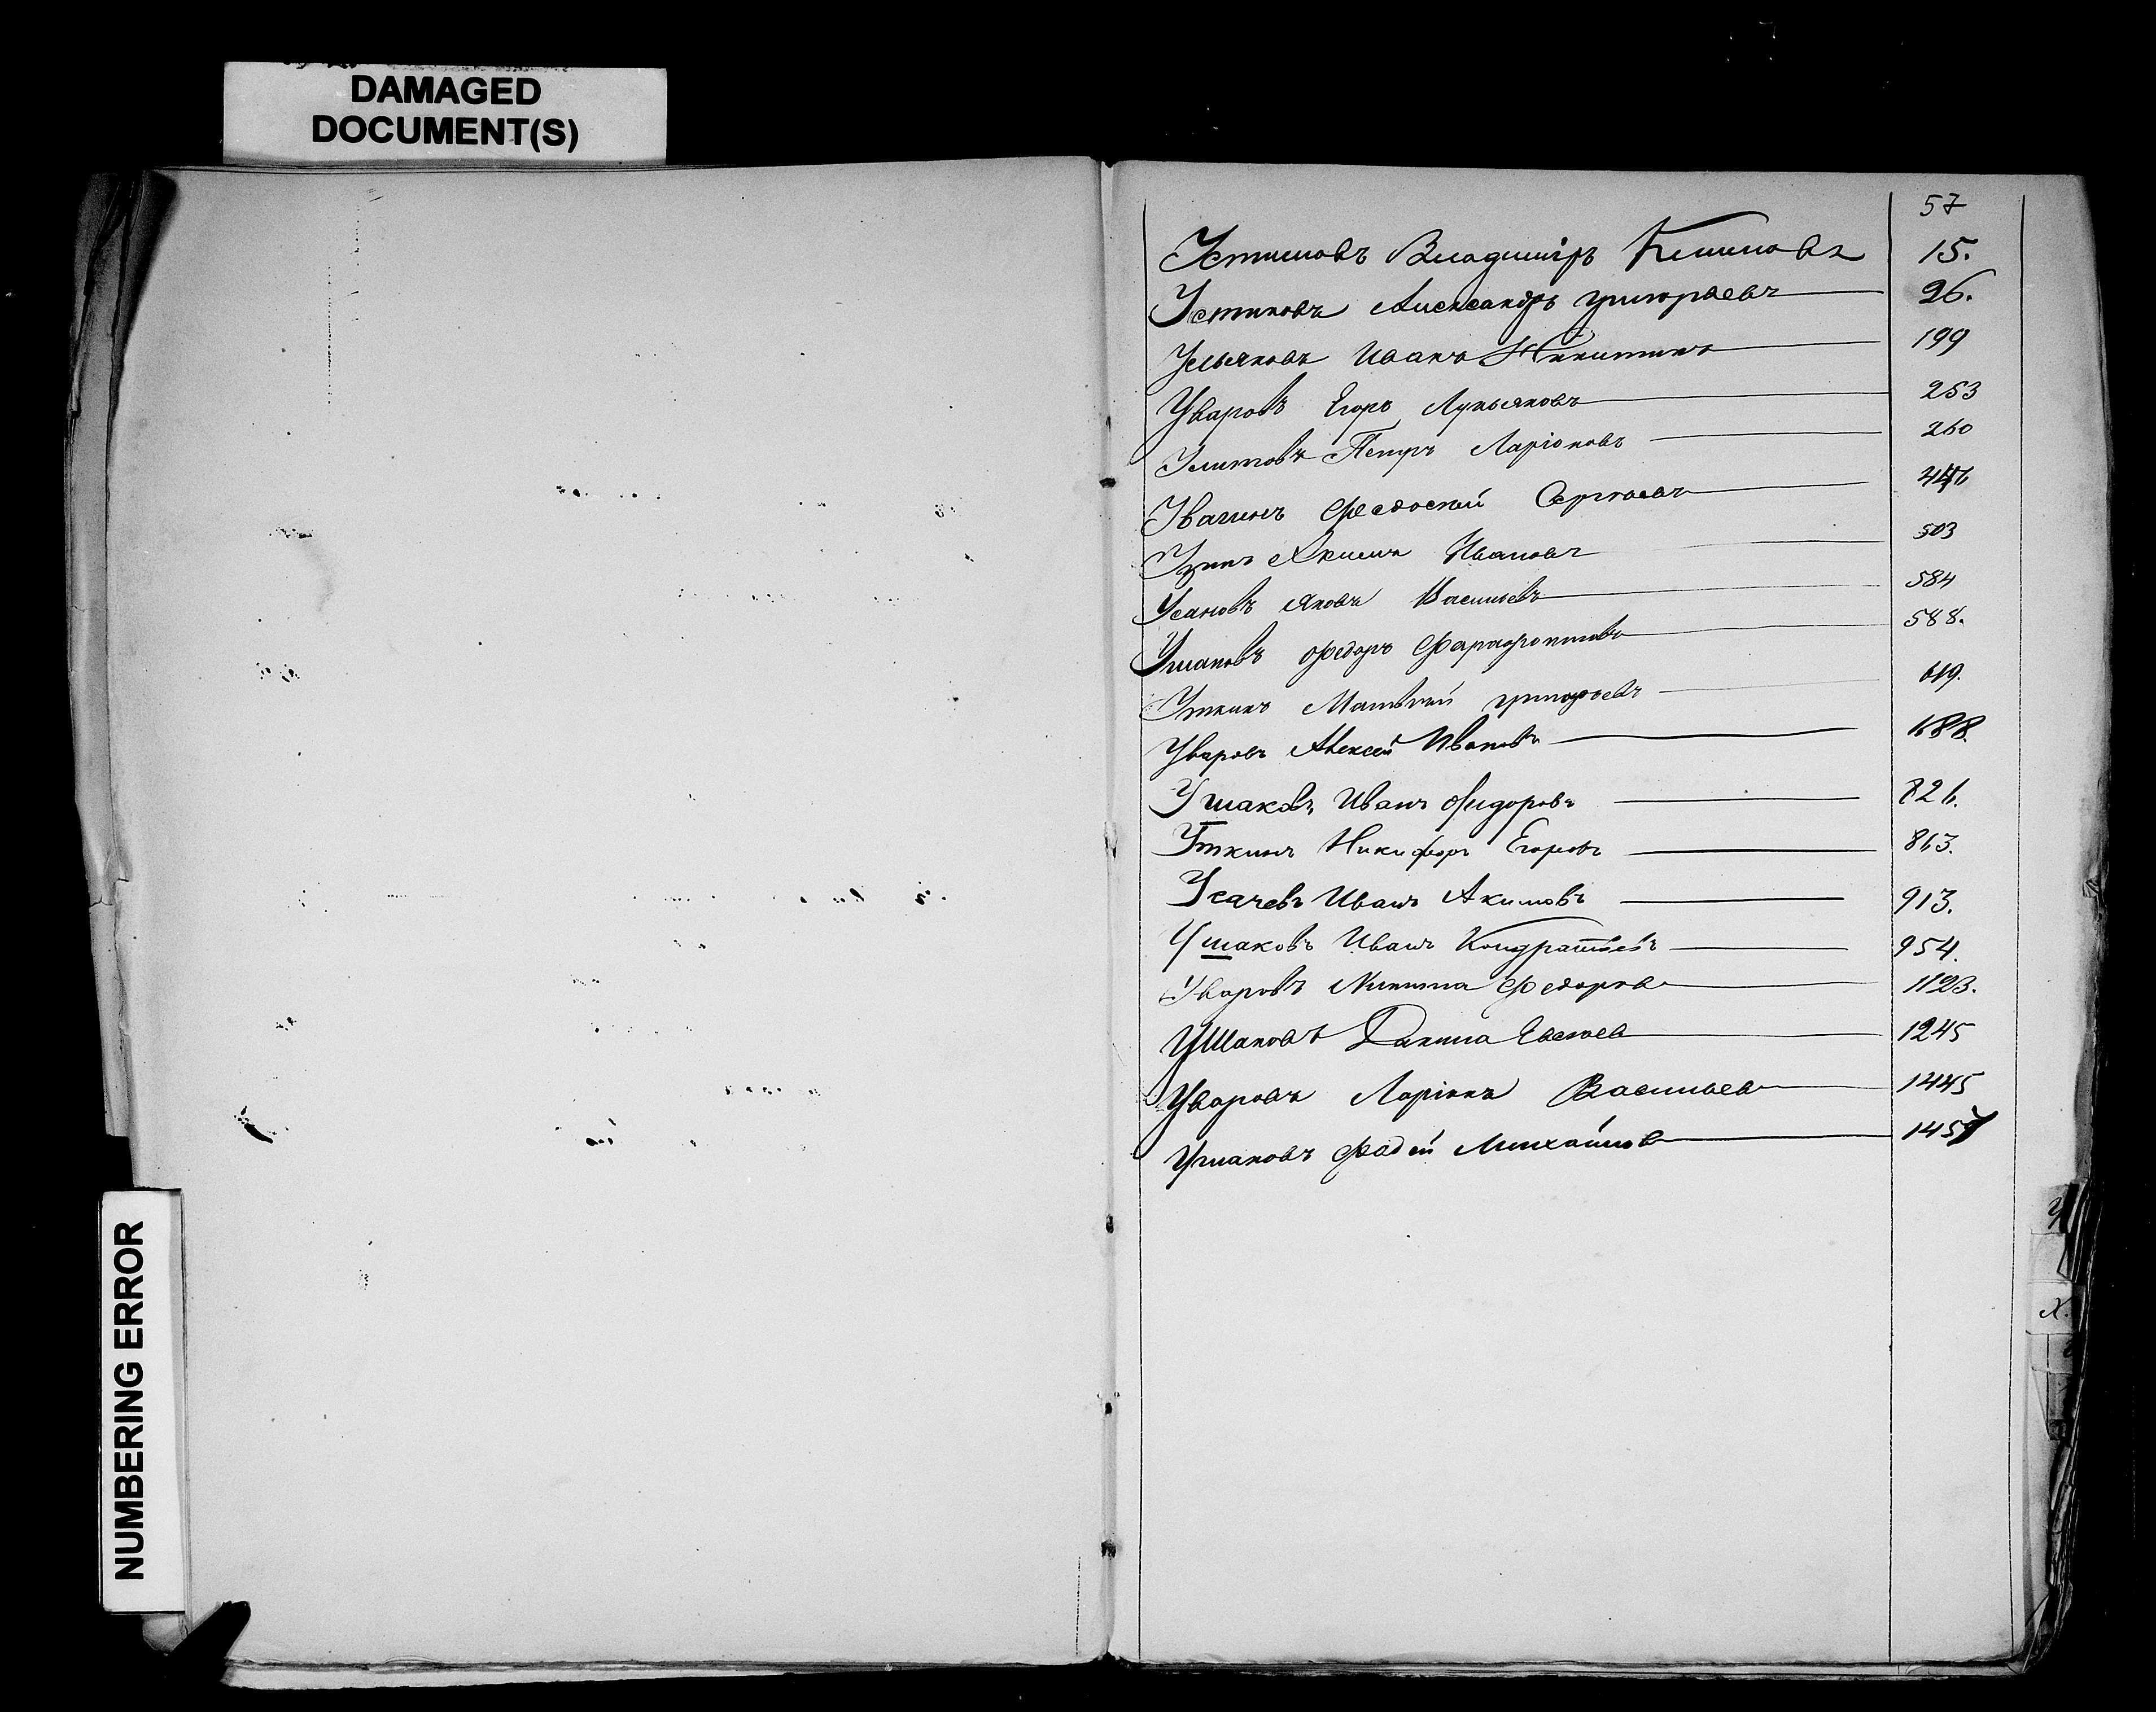 DAMAGED
DOCUMENT(S)
57
Устиновъ Владиміръ Климовъ 15.
Устиновъ Александръ Григорьевъ 26.
Ульяновъ Иванъ Никитинъ 199
Уваровъ Егоръ Лукьяновъ 253
Улитовъ Петръ Ларіоновъ 260
Увагинъ Федосѣй Сергѣевъ
Акимъ Ивановъ 503
Усановъ Яковъ Васильевъ 584
Ушаковъ Федоръ Фарафонтовъ 588.
Уткинъ Матвѣй Григорьевъ 619.
Уваровъ Алексѣй Ивановъ 688.
Ушаковъ Иванъ Фидоровъ 826.
Уткинъ Никифоръ Егоровъ 863.
Усачевъ Иванъ Акимовъ 913.
Ушаковъ Иванъ Кондратьевъ 954.
Уваровъ Никита Федоровъ 1123.
Ушаковъ Данила Евсѣев 1245
Уваровъ Ларіонъ Васильев 1445
Ушаковъ Фадей Михайлов
У
Х.
NUMBERING ERROR